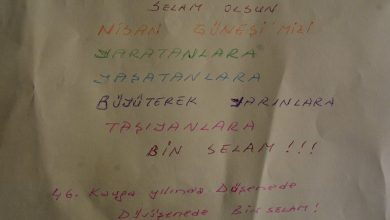 SELAM OLSUN
NİSAN GÜNEŞİ'MİZİ
YARATANLARA
YAŞATANLARA
BÜYÜTEREK YARINLARA
TAŞIYANLARA
BİN SELAM !!!
46. Kavga yılımızda Düşenede
Dövüşenede BİN SELAM!